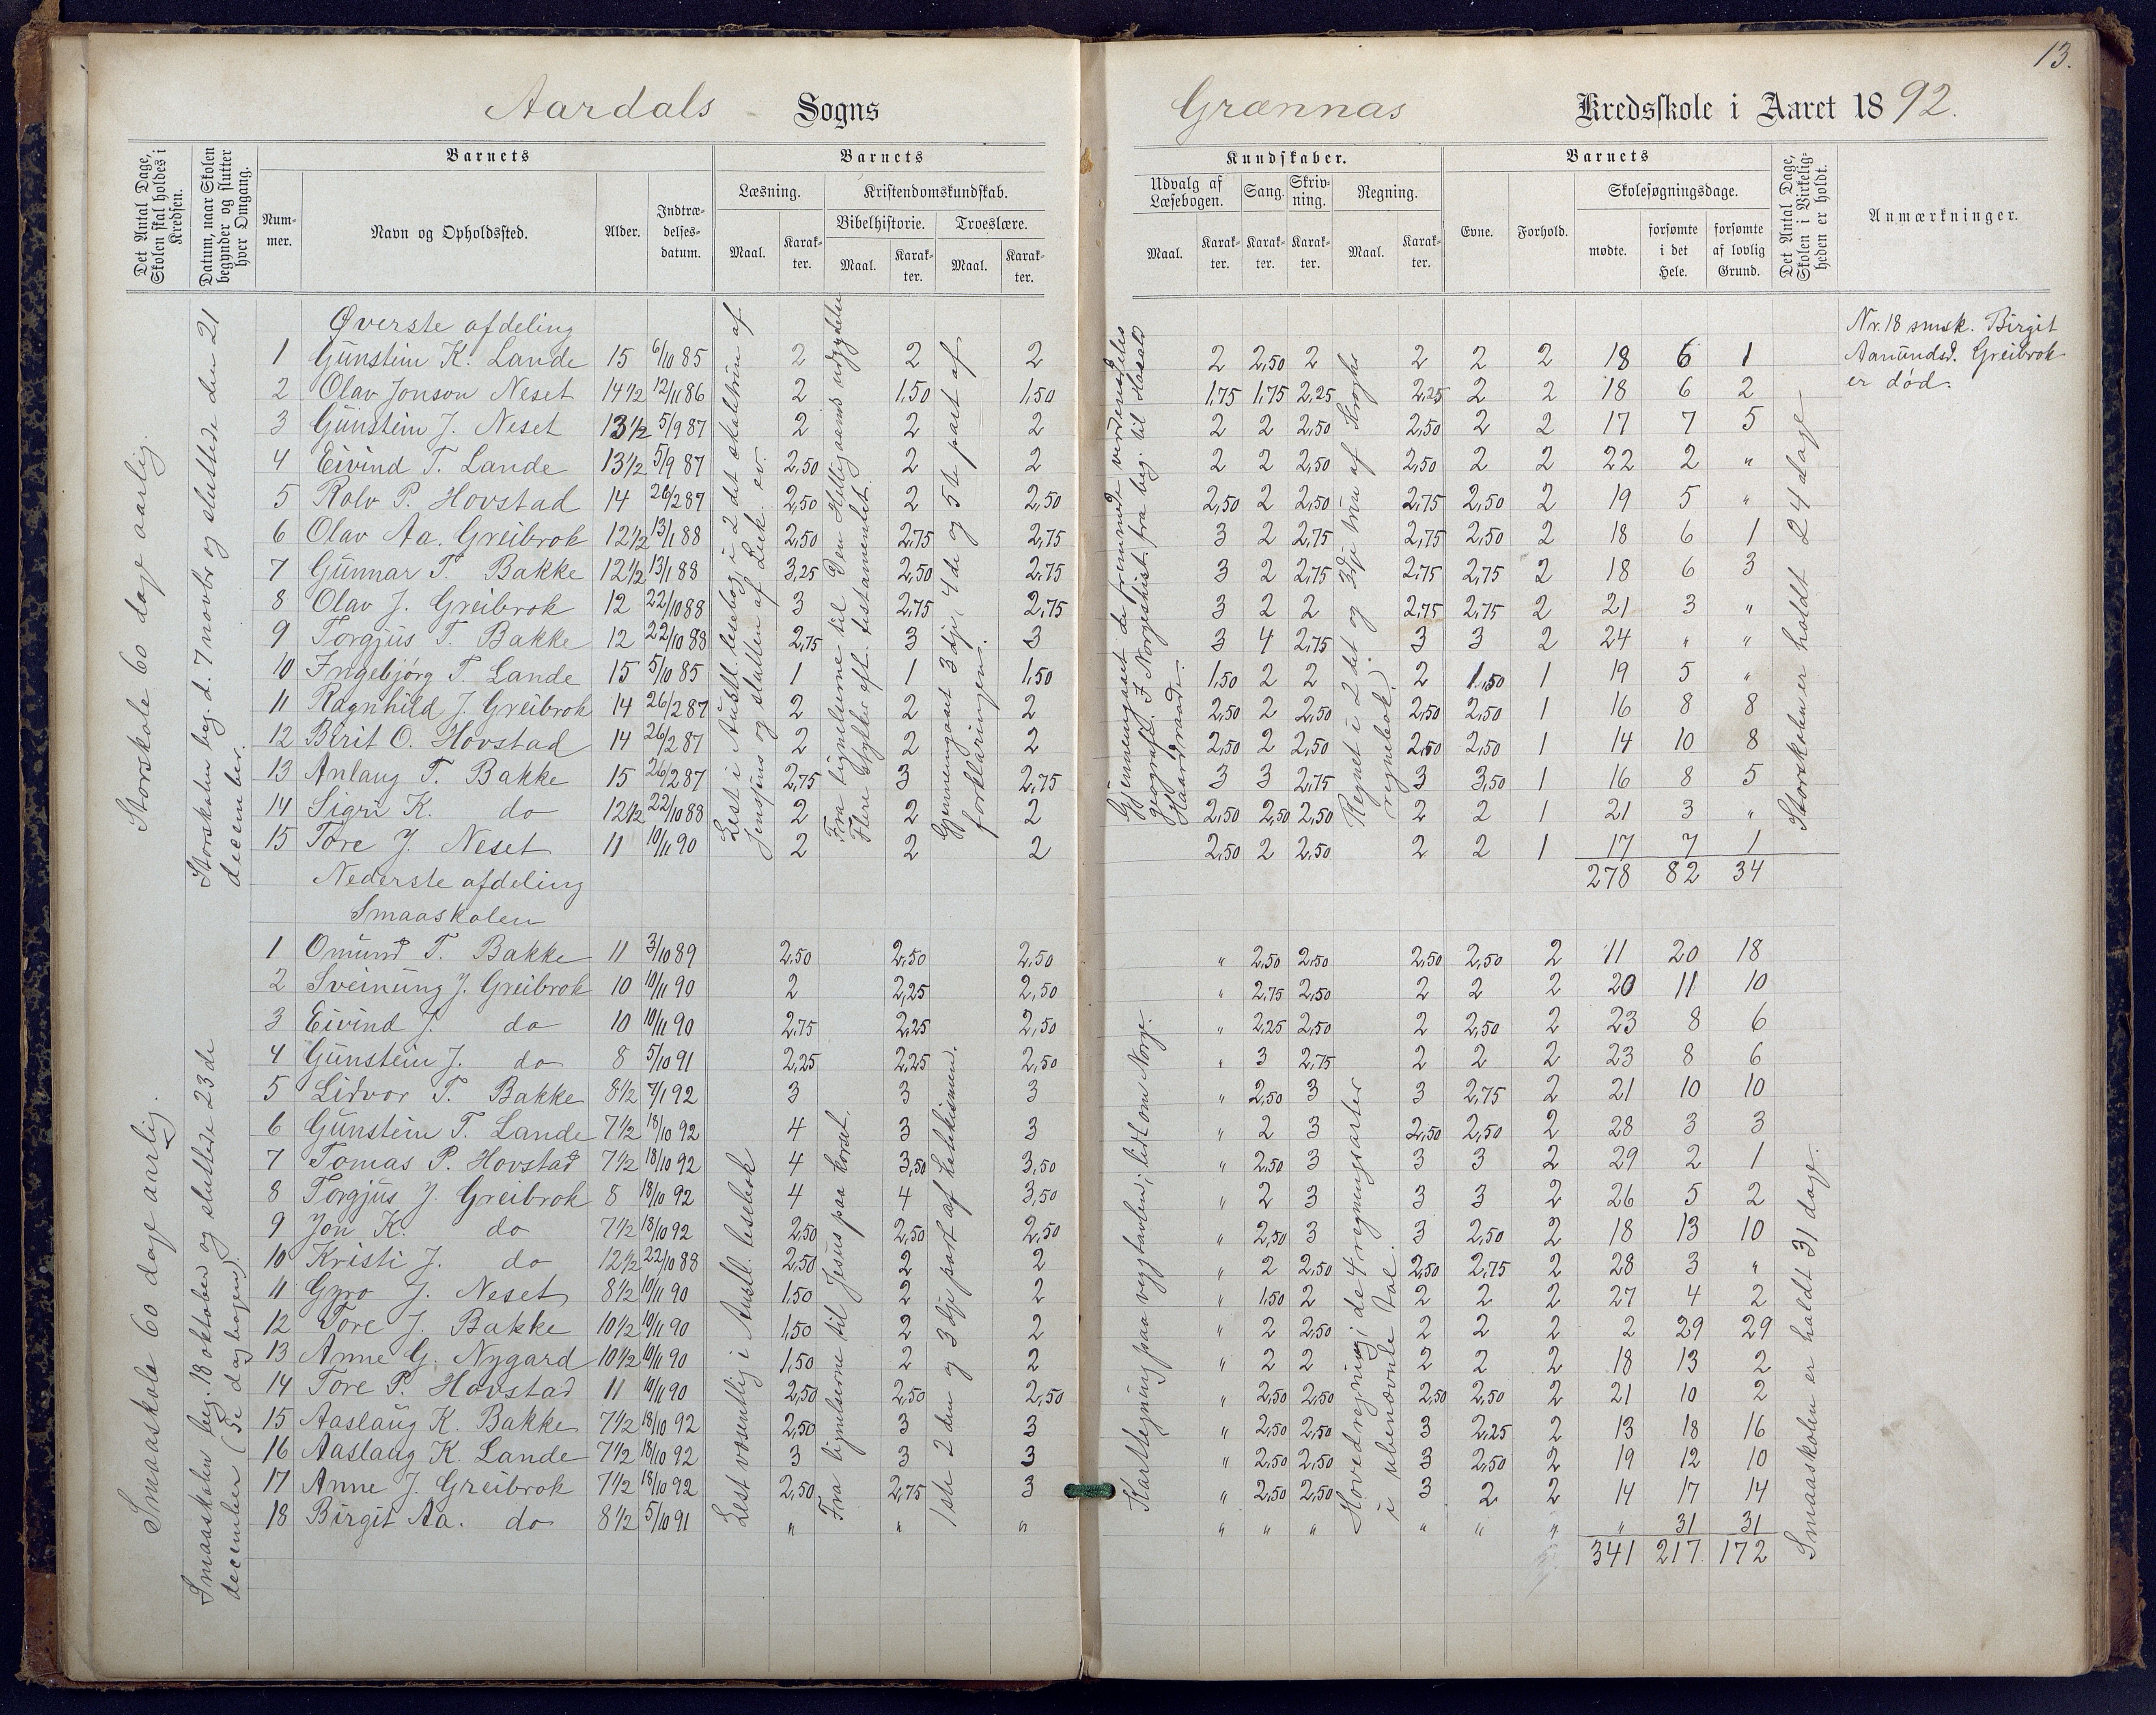 13.
Aardals Sogns
Grænnas Kredsskole i Aaret 1892.
Det Antal Dage, Skolen skal holdes i Kredsen.
Datum, naar Skolen begynder og slutter hver Omgang.
Barnets
Nummer.
Navn og Opholdssted.
Alder.
Indtrædelsesdatum.
Barnets
Læsning.
Maal.
Karakter.
Kristendomskundskab.
Bibelhistorie.
Maal.
Karakter.
Troeslære.
Maal.
Karakter.
Kundskaber.
Udvalg af Læsebogen.
Maal.
Karakter.
Sang.
Karakter.
Skrivning.
Karakter.
Regning.
Maal.
Karakter.
Barnets
Evne.
Forhold.
Skolesøgningsdage.
mødte.
forsømte i det Hele.
forsømte af lovlig Grund.
Det Antal Dage, Skolen i Virkeligheden er holdt.
Anmærkninger.
Storskole 60 dage aarlig.
Storskolen beg. d. 7 novbr og sluttede den 21
december.
Øverste afdeling
1 Gunstein K. Lande 15 6/10 85 2 2 2 2 2,50 2 2 2 2 18 6 1
2 Olav Jonson Neset 14 1/2 12/11 86 2 1,50 1,50 1,75 1,75 2,25 2,25 2 2 18 6 2
3 Gunstein J. Neset 13 1/2 5/9 87 2 2 2 2 2 2,50 2,50 2 2 17 7 5
4 Eivind T. Lande 13 1/2 5/9 87 2,50 2 2 2 2 2,50 2,50 2 2 22 2 "
5 Rolv P. Hovstad 14 26/2 87 2,50 2 2,50 2,50 2 2,50 2,75 2,50 2 19 5 "
6 Olav Aa. Greibrok 12 1/2 13/1 88 2,50 2,75 2,75 3 2 2,75 2,75 2,50 2 18 6 1
7 Gunnar T. Bakke 12 1/2 13/1 88 3,25 2,50 2,75 3 2 2,75 2,75 2,75 2 18 6 3
8 Olav J. Greibrok 12 22/10 88 3 2,75 2,75 3 2 2 2,75 2,75 2 21 3 "
9 Torgjus T. Bakke 12 22/10 88 2,75 3 3 3 4 2,75 3 3 2 24 " "
10 Ingebjørg T. Lande 15 5/10 85 1 1 1,50 1,50 2 2 2 1,50 1 19 5 "
11 Ragnhild J. Greibrok 14 26/2 87 2 2 2 2,50 2 2,50 2,50 2,50 1 16 8 8
12 Birit O. Hovstad 14 26/2 87 2 2 2 2,50 2 2,50 2,50 2,50 1 14 10 8
13 Anlaug T. Bakke 15 26/2 87 2,75 3 2,75 3 3 2,75 3 3,50 1 16 8 5
14 Sigri K. do 12 1/2 22/10 88 2 2 2 2,50 2,50 2,50 2 2 1 21 3 "
15 Tore J. Neset 11 10/11 90 2 2 2 2,50 2 2,50 2 2 1 17 7 1
278 82 34
Lest i Austl. lesebog i 2 det skoletrin af
Jenssens og slutten af Luk. ev.
Fra lignelserne til Den Helligaand udgydelse
Flere stykker af t. testamentet.
Gjennemgaaet 3 dje, 4 de og 5 te part af
forklaringen.
Gjennemgaaet de fremmede verdensdeles
geografi. I Norgeshist. fra beg. til Harald
Haardraade.
Regnet i 2 det og 3 dje trin af Kroghs
regnebok.
Storskolen er holdt 24 dage
Nr. 18 smsk. Birgit
Aamundsd. Greibrok
er død.
Nederste afdeling
Smaaskolen
Smaaskole 60 dage aarlig.
Smaaskolen beg. 18 oktober og sluttede 23 de
december (Se dagbogen).
1 Omund T. Bakke 11 3/10 89 2,50 2,50 2,50 " 2,50 2,50 2,50 2,50 2 11 20 18
2 Sveinung J. Greibrok 10 10/11 90 2 2,25 2,50 " 2,75 2,50 2 2 2 20 11 10
3 Eivind J. do 10 10/11 90 2,75 2,25 2,50 " 2,25 2,50 2 2,50 2 23 8 6
4 Gunstein J. do 8 5/10 91 2,25 2,25 2,50 " 3 2,75 2 2 2 23 8 6
5 Lidvor T. Bakke 8 1/2 7/1 92 3 3 3 " 2,50 3 3 2,75 2 21 10 10
6 Gunstein T. Lande 7 1/2 18/10 92 4 3 3 " 2 3 2,50 2,50 2 28 3 3
7 Tomas P. Hovstad 7 1/2 18/10 92 4 3,50 3,50 " 2,50 3 3 3 2 29 2 1
8 Torgjus J. Greibrok 8 18/10 92 4 4 3,50 " 2 3 3 3 2 26 5 2
9 Jon K. do 7 1/2 18/10 92 2,50 2,50 2,50 " 2,50 3 3 2,50 2 18 13 10
10 Kristi J. do 12 1/2 22/10 88 2,50 2 2 " 2 2,50 2,50 2,75 2 28 3 "
11 Gyro J. Neset 8 1/2 10/11 90 1,50 2 2 " 1,50 2 2 2 2 27 4 2
12 Tore J. Bakke 10 1/2 10/11 90 1,50 2 2 " 2 2,50 2 2 2 2 29 29
13 Anne G. Nygard 10 1/2 10/11 90 1,50 2 2 " 2 2 2 2 2 18 13 2
14 Tore P. Hovstad 11 10/11 90 2,50 2,50 2,50 " 2,50 2,50 2,50 2,50 2 21 10 2
15 Aaslaug K. Bakke 7 1/2 18/10 92 2,50 3 3 " 2,50 2,50 3 2,25 2 13 18 16
16 Aaslaug K. Lande 7 1/2 18/10 92 3 3 3 " 2,50 2,50 3 2,50 2 19 12 10
17 Anne J. Greibrok 7 1/2 18/10 92 2,50 2,75 3 " 2,50 2,50 3 2 2 14 17 14
18 Birgit Aa. do 8 1/2 5/10 91 " " " " " " " " " " 31 31
341 217 172
Lest væsentlig i Austl. lesebok
Fra lignelserne til Jesus paa korset.
1ste 2 den og 3 dje part af katekismen.
Karttegning paa vægtavlen; lidt om Norge.
Hovedregning i de 4 regningsarter
i ubenævnte tal.
Smaaskolen er holdt 31 dage.